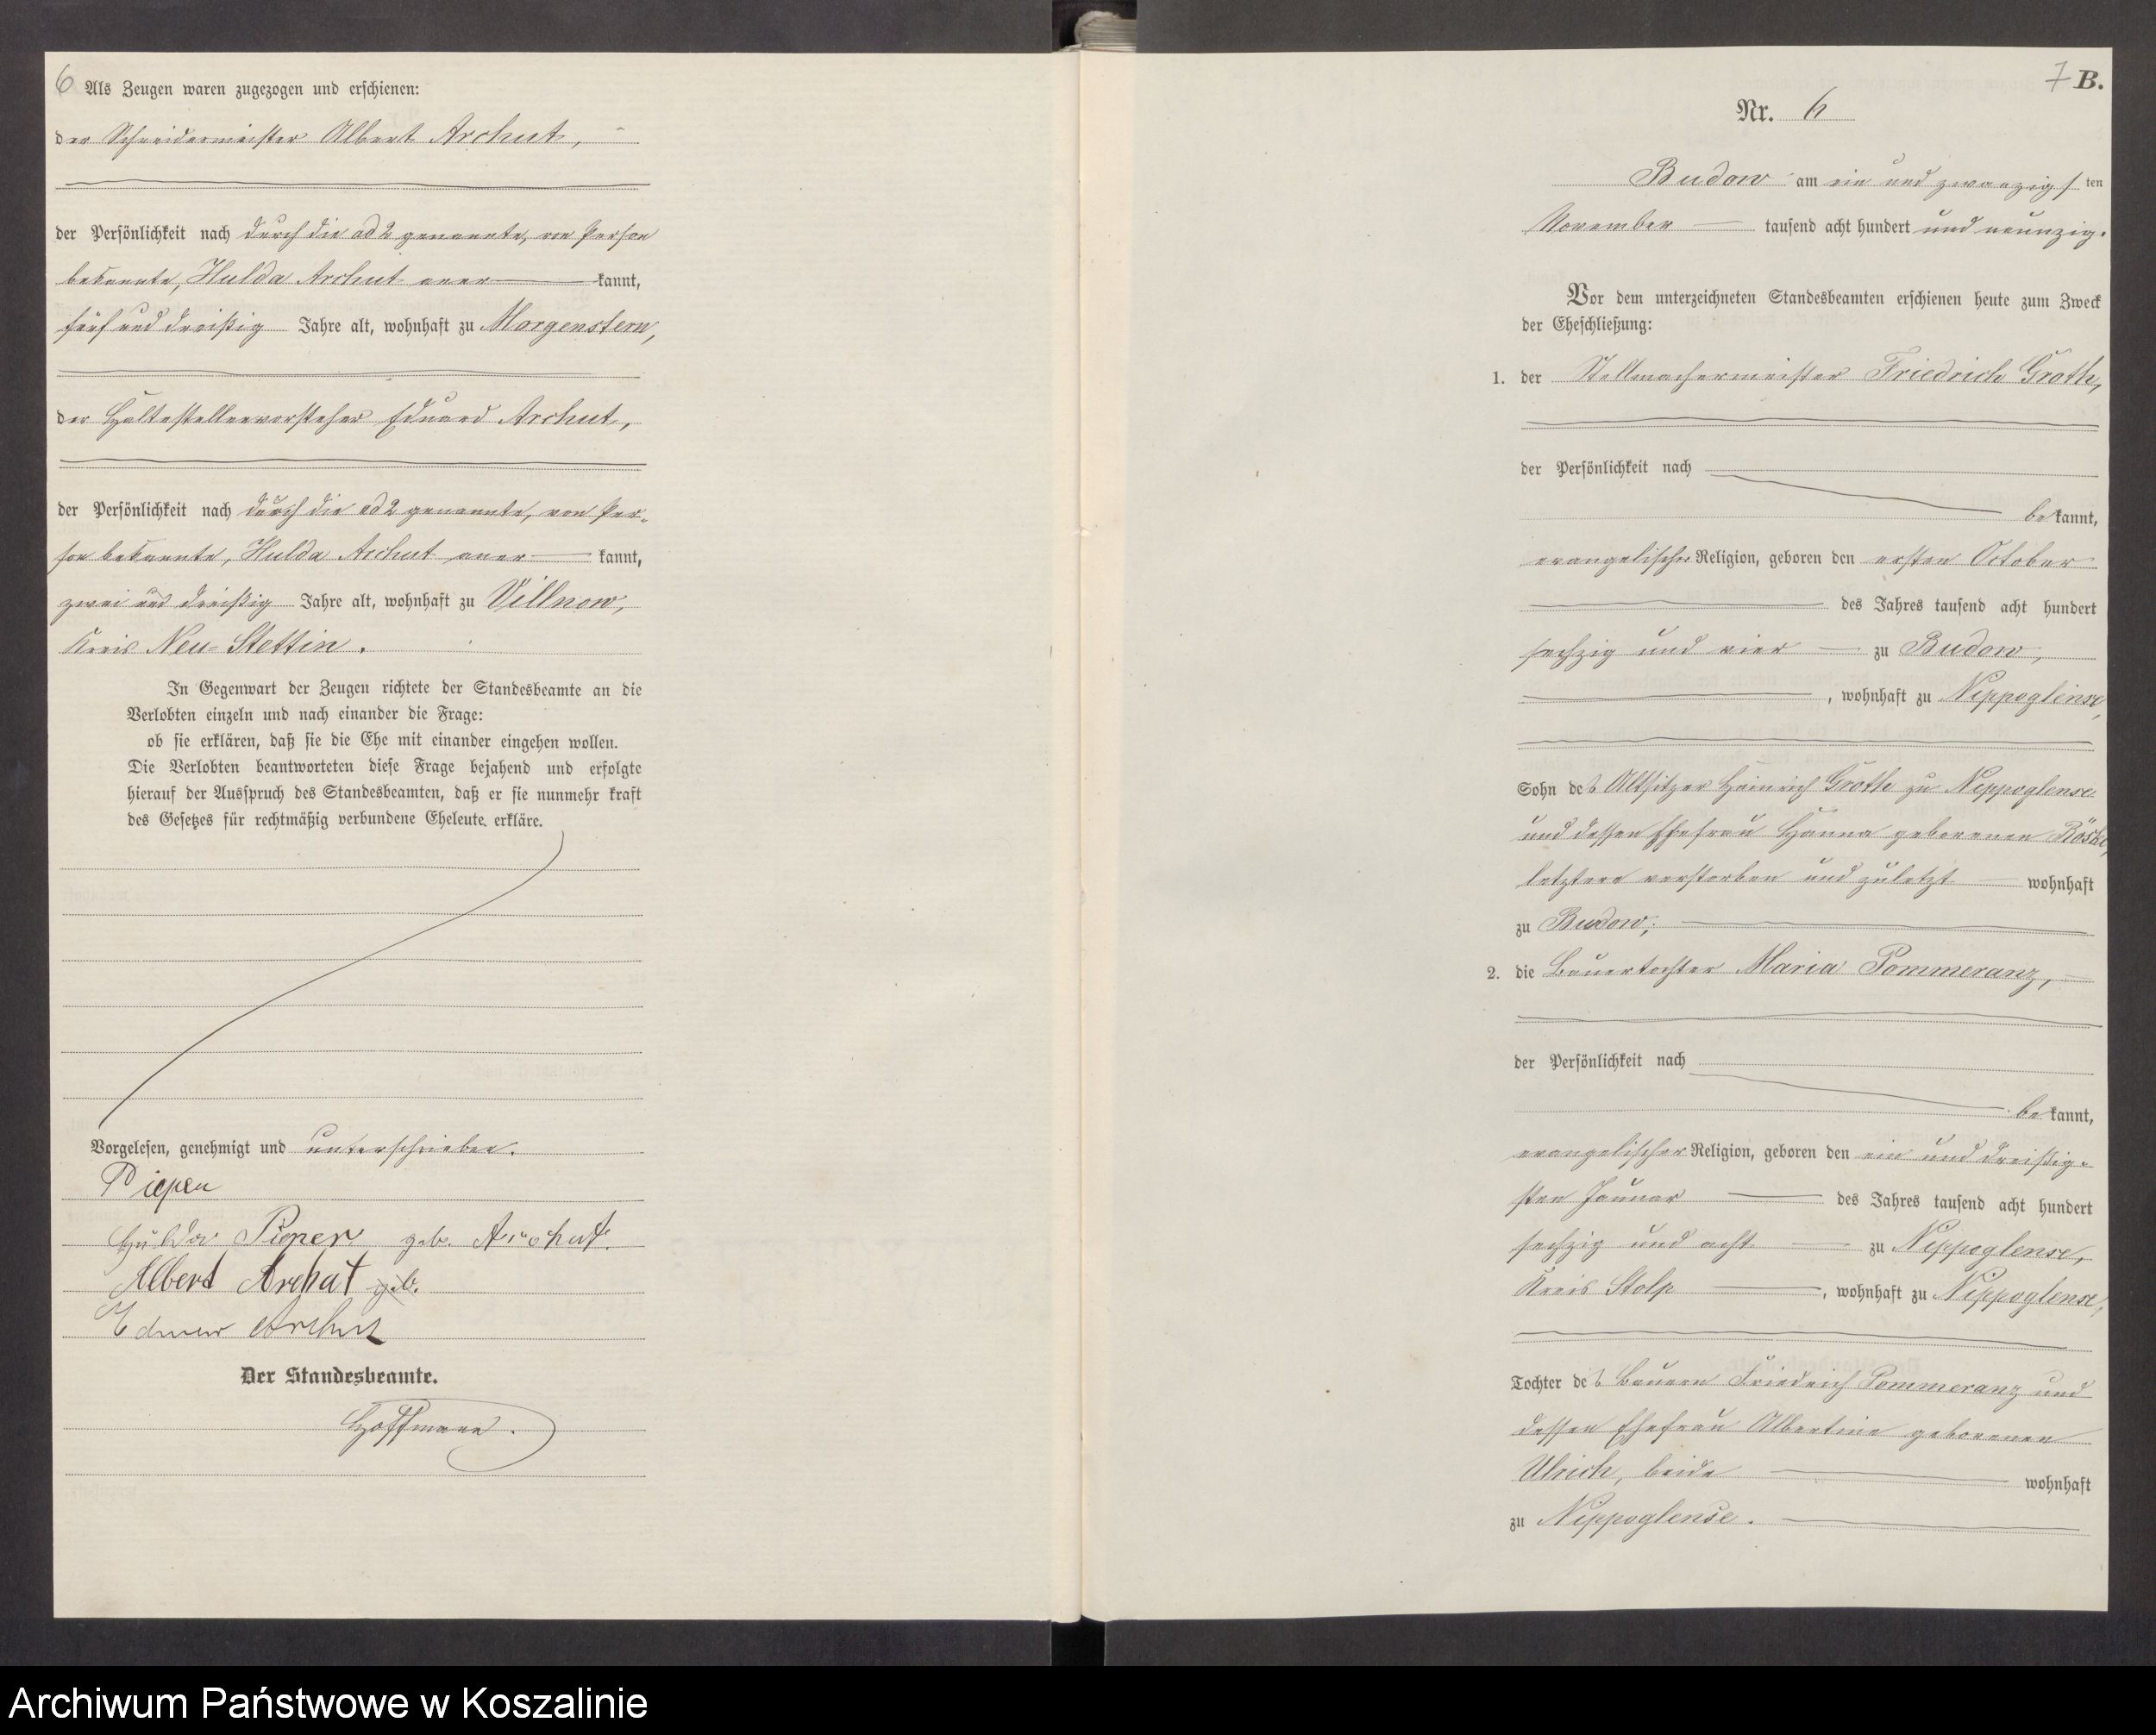 6 Als Zeugen waren zugezogen und erschienen:
der Schneidermeister Albert Archut,
der Persönlichkeit nach durch die ad 2 genannte, von Person
bekannte, Hulda Archut aner kannt,
fünf und dreißig Jahre alt, wohnhaft zu Morgenstern,
der Haltestellenvorsteher Eduard Archut,
der Persönlichkeit nach durch die ad 2 genannte, von Per-
son bekannte, Hulda Archut aner kannt,
zwei und dreißig Jahre alt, wohnhaft zu Villnow,
Kreis Neu-Stettin.
In Gegenwart der Zeugen richtete der Standesbeamte an die
Verlobten einzeln und nach einander die Frage:
ob sie erklären, daß sie die Ehe mit einander eingehen wollen.
Die Verlobten beantworteten diese Frage bejahend und erfolgte
hierauf der Ausspruch des Standesbeamten, daß er sie nunmehr kraft
des Gesetzes für rechtmäßig verbundene Eheleute erkläre.
Vorgelesen, genehmigt und unterschrieben.
Piepen
Hulda Pieper geb. Archut.
Albert Archut geb.
Eduard Archut
Der Standesbeamte.
Hoffmann.
7 B.
Nr. 6
Budow am ein und zwanzigs ten
November tausend acht hundert und neunzig.
Vor dem unterzeichneten Standesbeamten erschienen heute zum Zweck
der Eheschließung:
1. der Stellmachermeister Friedrich Groth,
der Persönlichkeit nach
be kannt,
evangelischer Religion, geboren den ersten October
des Jahres tausend acht hundert
sechzig und vier zu Budow,
, wohnhaft zu Nippoglense,
Sohn des Altsitzer Heinrich Groth zu Nippoglense
und dessen Ehefrau Hanna geborenen Röske,
letztere verstorben und zuletzt wohnhaft
zu Budow;
2. die Bauertochter Maria Pommeranz,
der Persönlichkeit nach
be kannt,
evangelischer Religion, geboren den ein und dreißig-
sten Januar des Jahres tausend acht hundert
sechzig und acht zu Nippoglense,
Kreis Stolp , wohnhaft zu Nippoglense,
Tochter des Bauern Friedrich Pommeranz und
dessen Ehefrau Albertine geborenen
Ulrich, beide wohnhaft
zu Nippoglense.
Archiwum Państwowe w Koszalinie